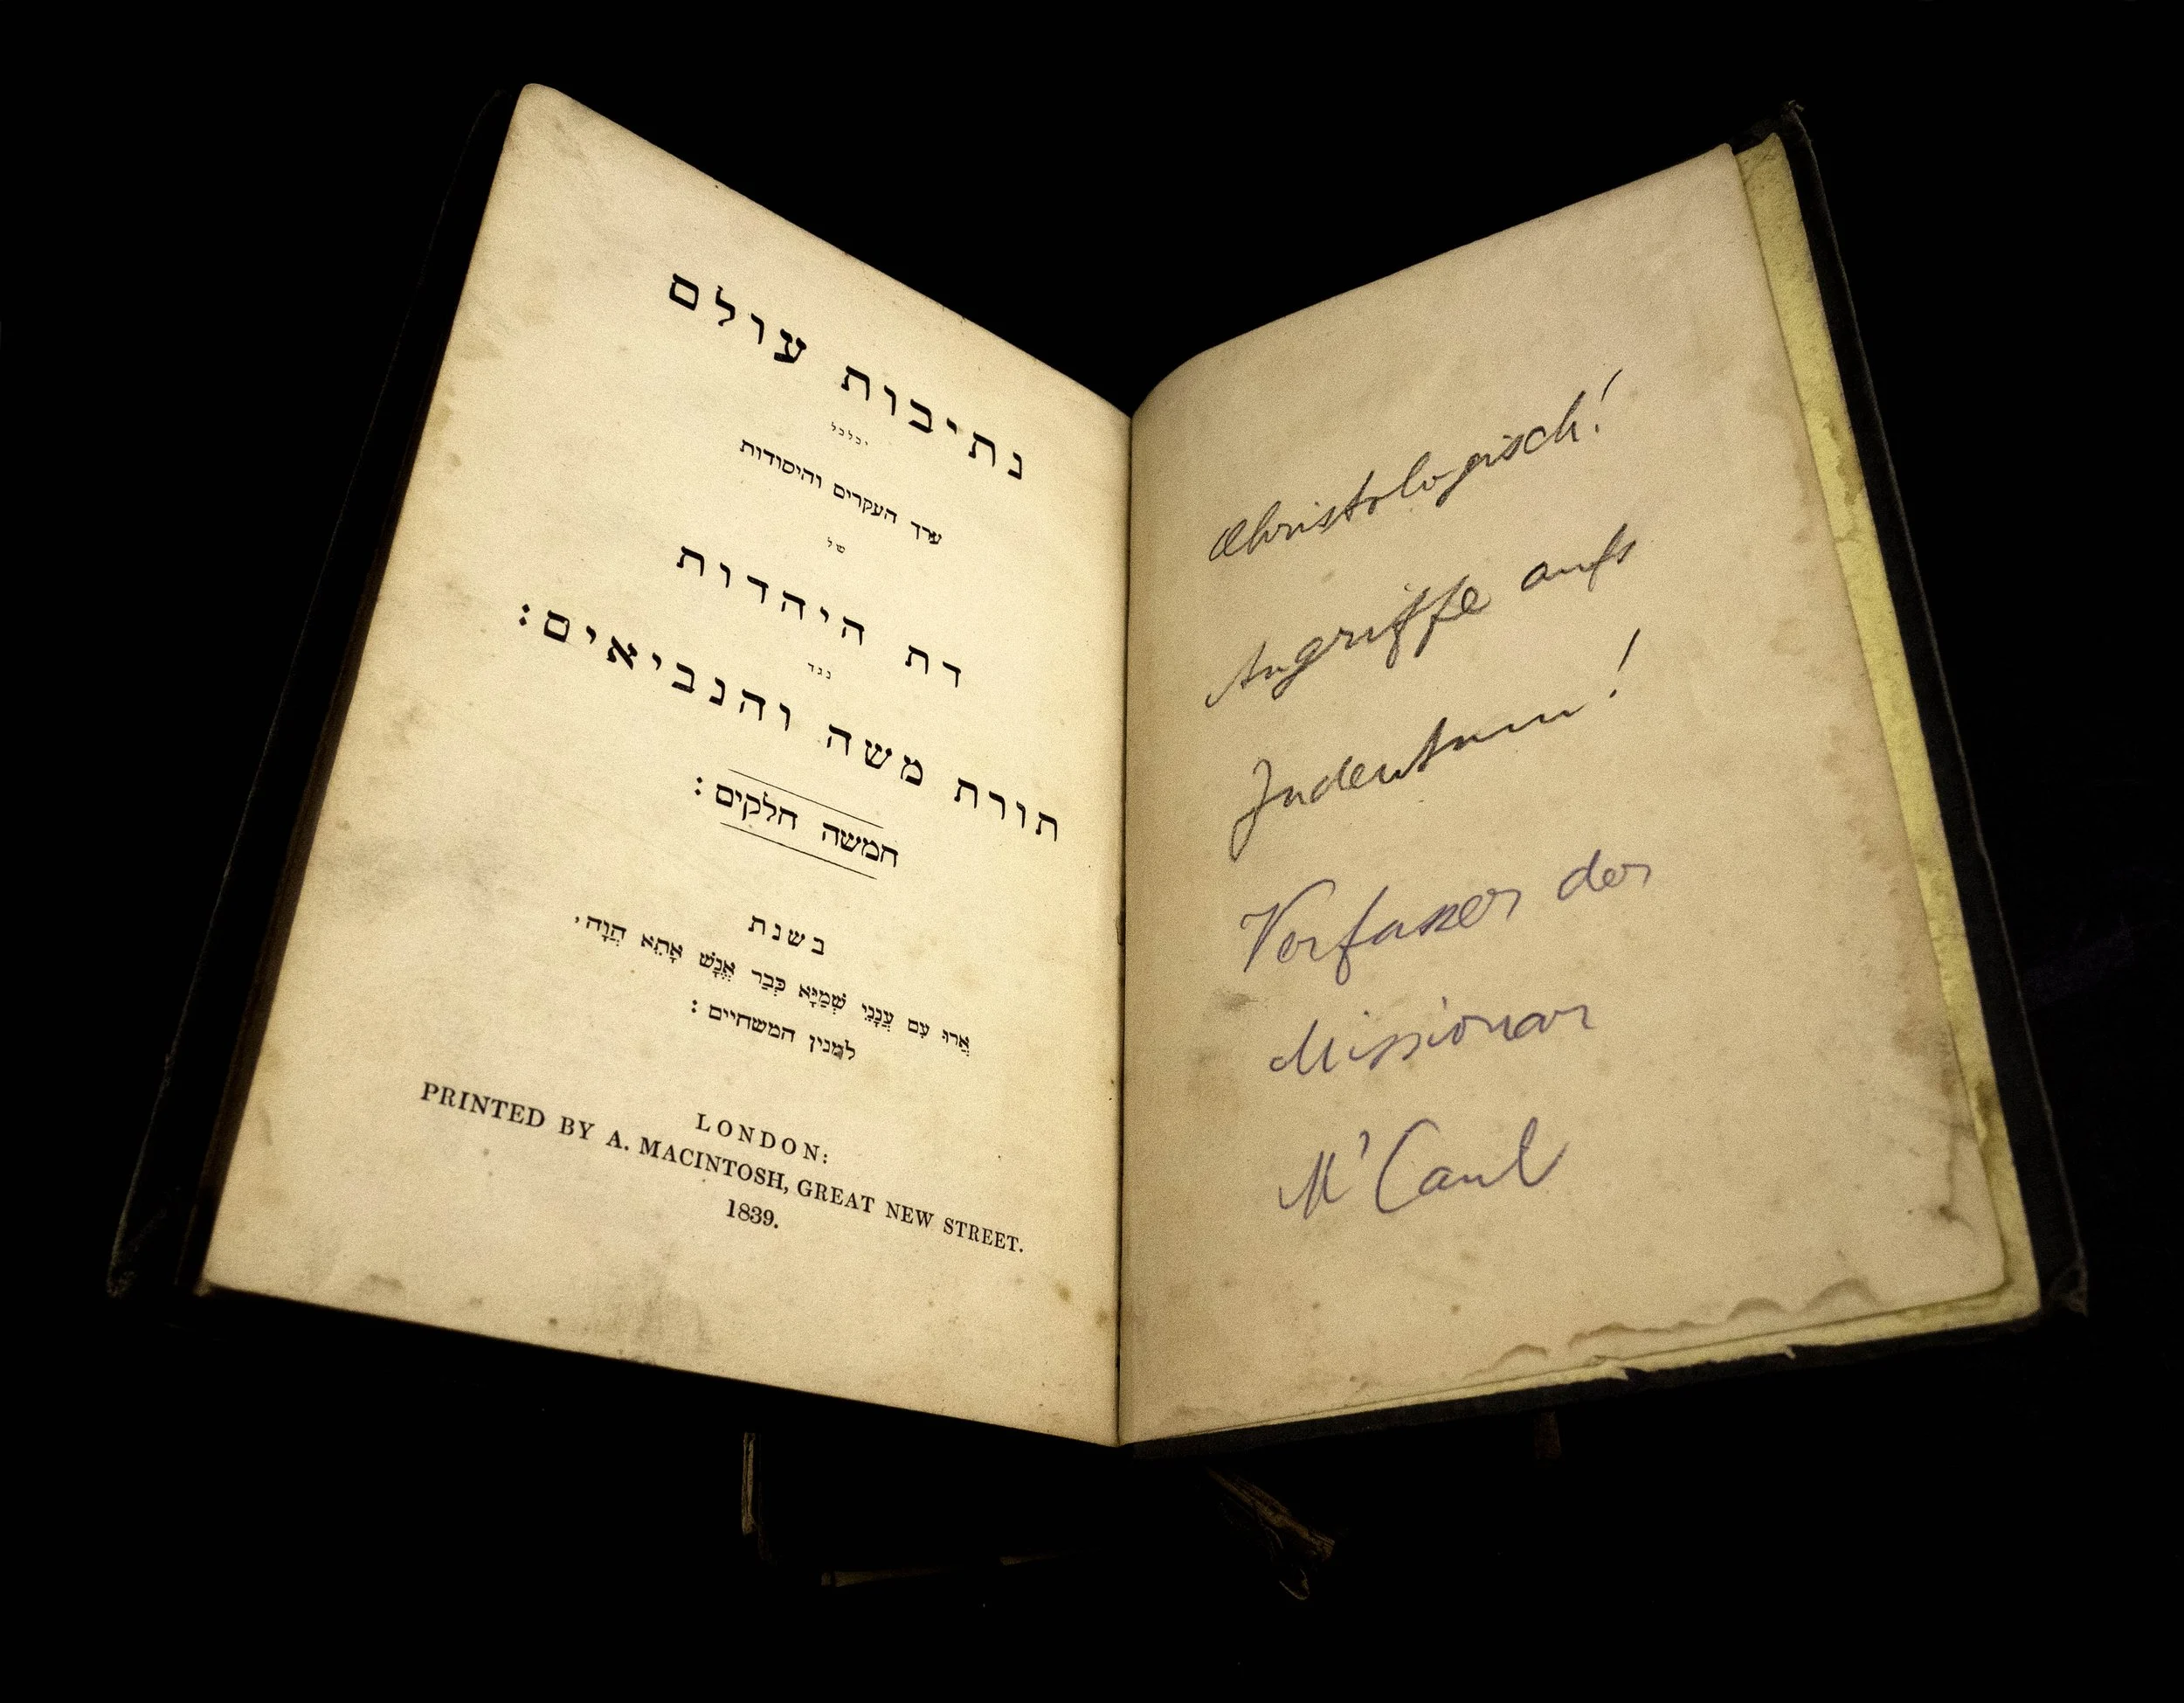 נתיבות עולם
יכלכל
ערך העקרים והיסודות
של
דת היהדות
נגד
תורת משה והנביאים:
חמשה חלקים:
בשנת
אֲרוּ עִם עֲנָנֵי שְׁמַיָּא כְּבַר אֱנָשׁ אָתֵא הֲוָה.
למנין המשחיים:
LONDON:
PRINTED BY A. MACINTOSH, GREAT NEW STREET.
1839.
Christologisch!
Angriffe aufs
Judentum!
Verfasser der
Missionar
M'Caul